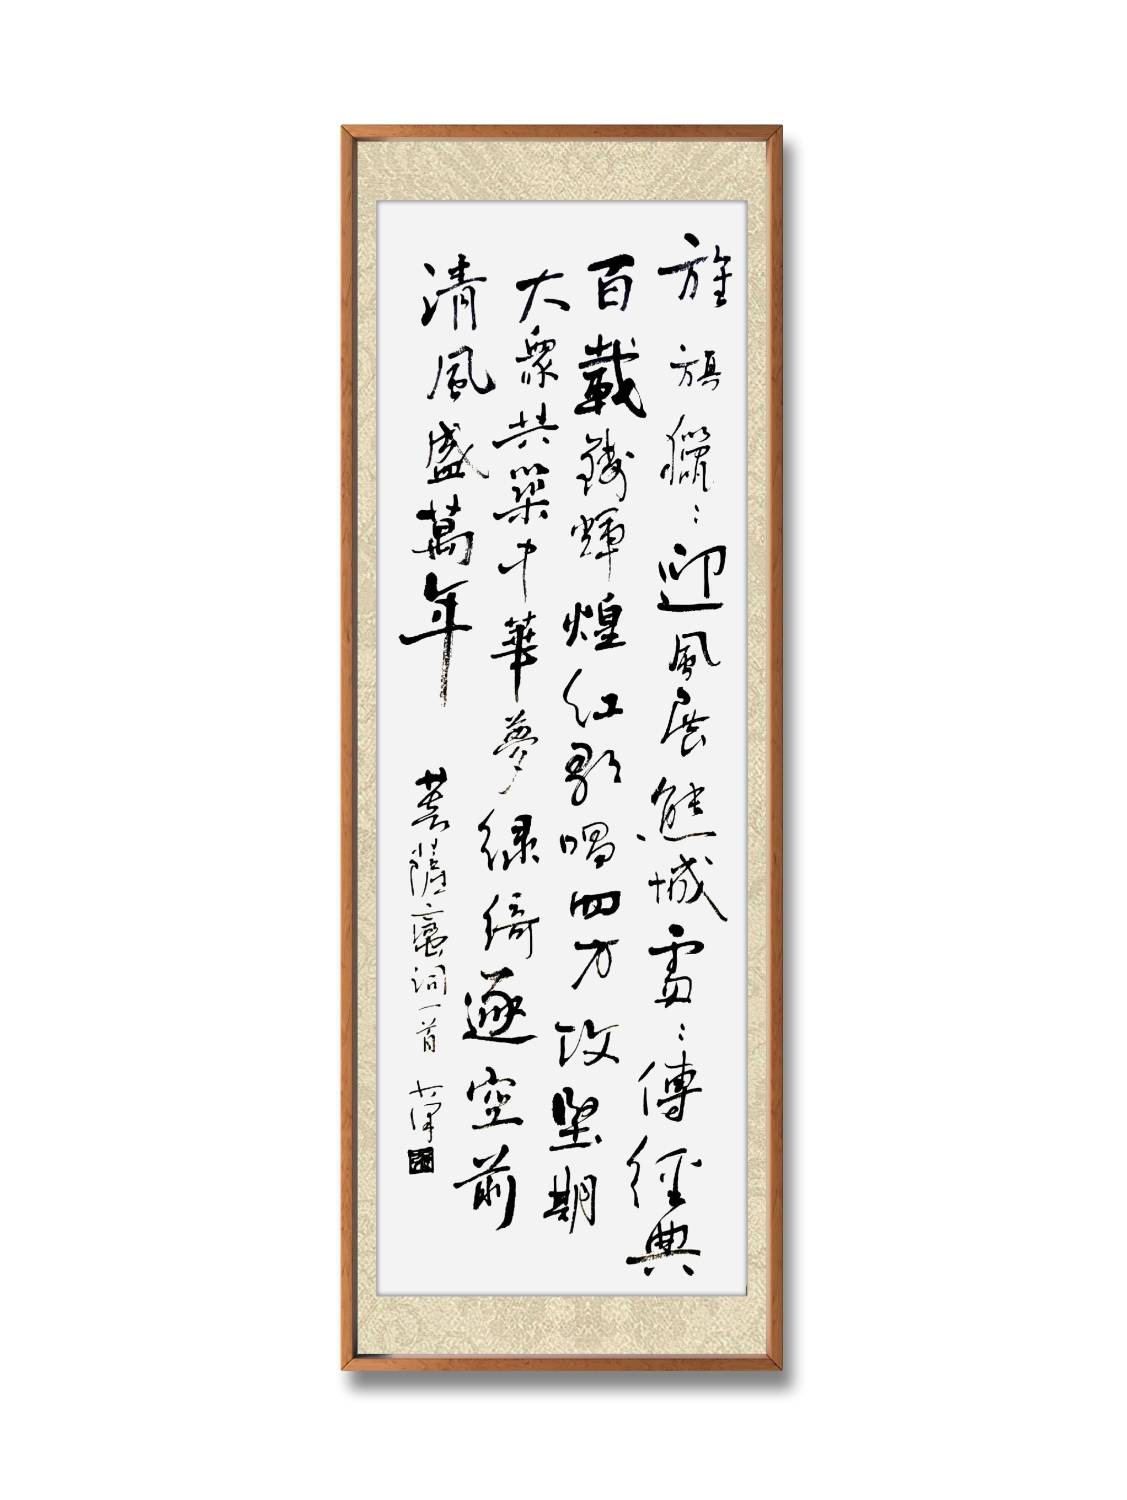 旌旗獵:迎風展熊城處:傳經典
百載鑄輝煌紅歌唱四方攻堅期
大眾共築中華夢綠綺逐空前
清風盛萬年
菩薩蠻詞一首